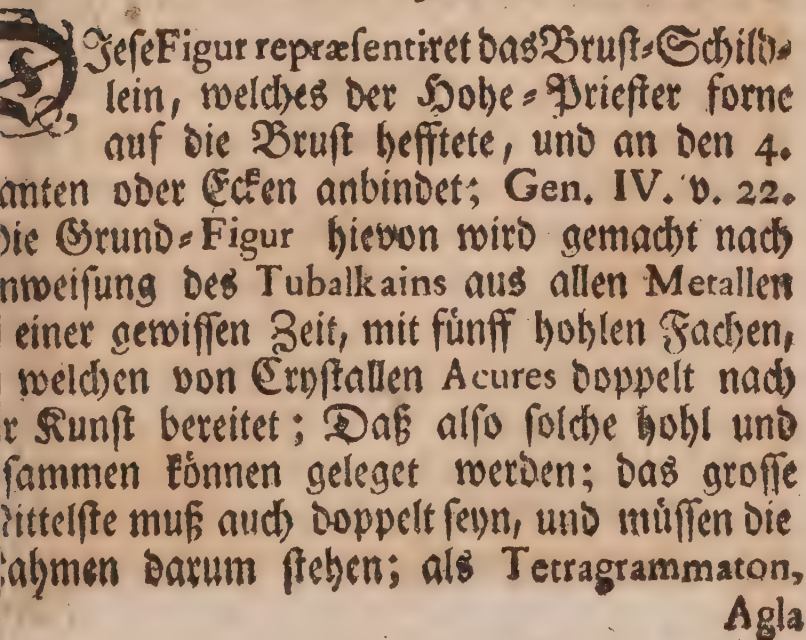 DJeseFigur repræsentiret das Brust-Schild-
lein, welches der Hohe-Priester forne
auf die Brust hefftete, und an den 4.
anten oder Ecken anbindet; Gen. IV. v. 22.
Die Grund-Figur hievon wird gemacht nach
nweisung des Tubalkains aus allen Metallen
einer gewissen Zeit, mit fünff hohlen Fachen,
welchen von Crystallen Acures doppelt nach
r Kunst bereitet; Daß also solche hohl und
sammen können geleget werden; das grosse
Mittelste muß auch doppelt seyn, und müssen die
ahmen darum stehen; als Tetragrammaton,
Agla